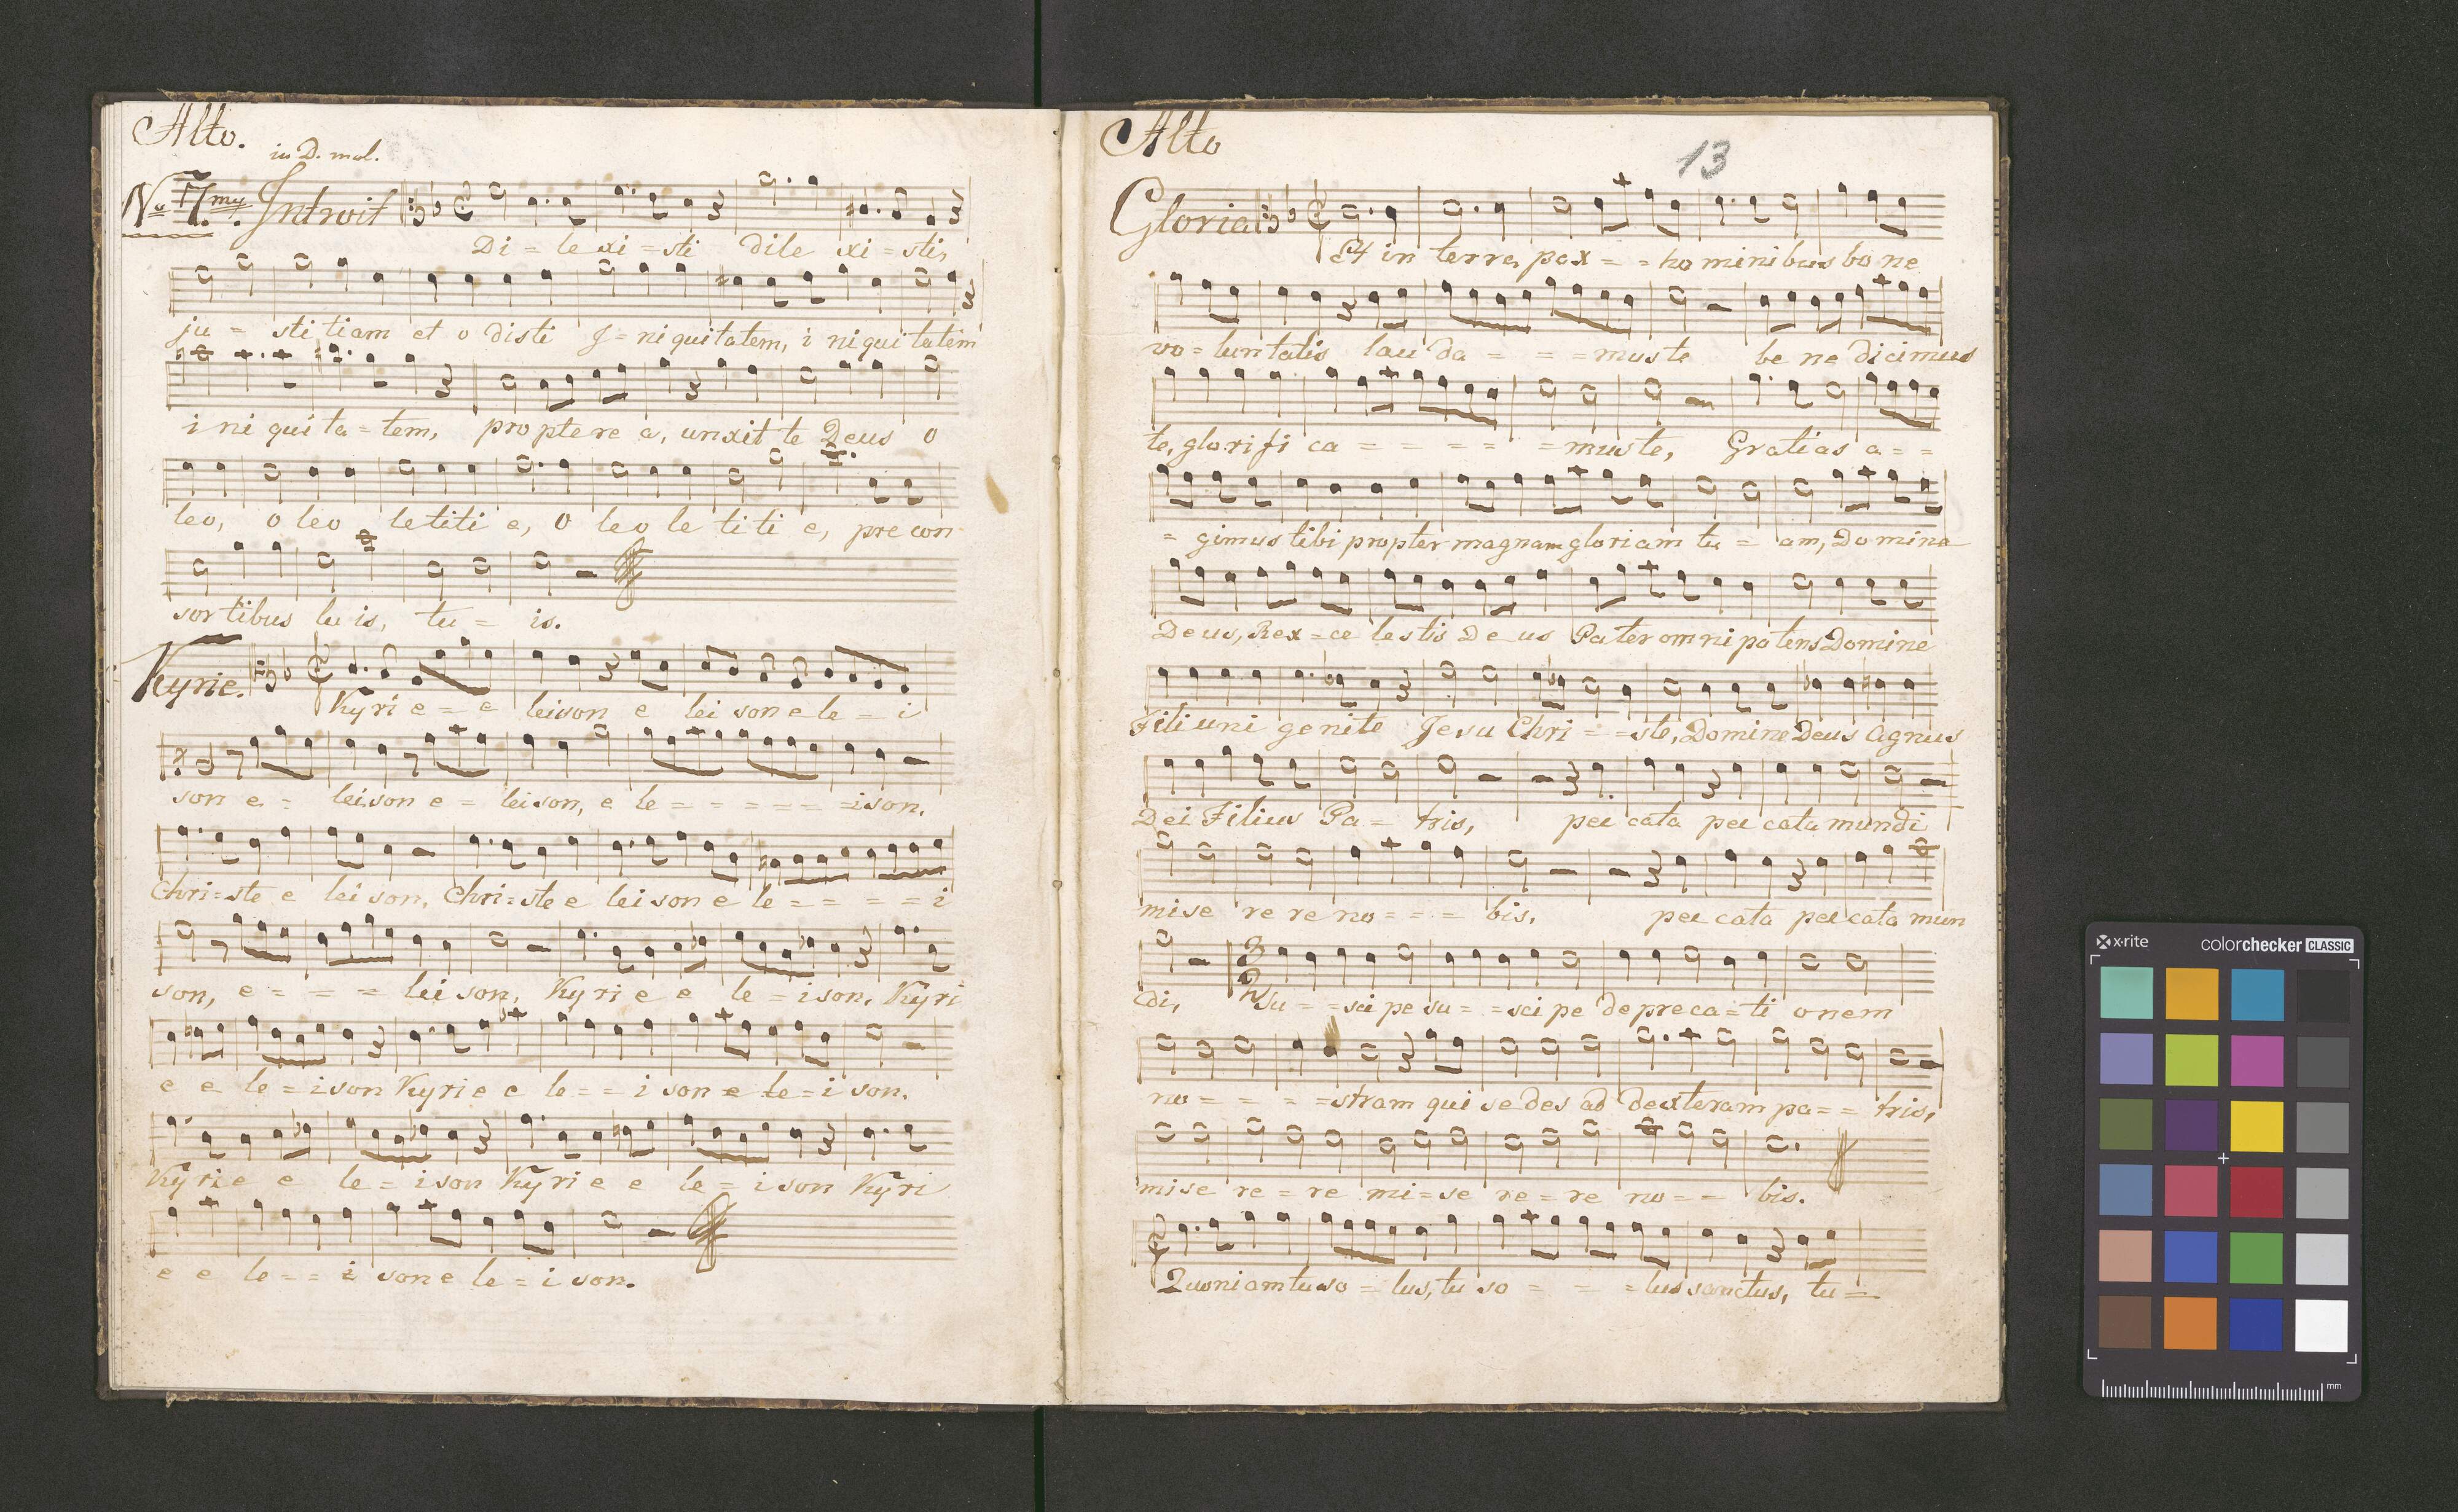 Alto.
in D. mol.
No 7my. Introit
Di = le xi = sti dile xi = sti,
ju = sti tiam et o disti J = ni quitatem, i ni qui tatem
i ni qui ta = tem, pro ptere a, unxit te Deus o
leo, o leo letiti e, o leo le ti ti e, pre con
sortibus tu is, tu = is.
Kyrie.
Kyri e = e leison e lei son e le = i
son e = leison e = leison, e le = = = = = = ison.
Chri=ste e leison, Chri=ste e leison e le = = = = i
son, e = = = lei son, Kyri e e le = ison. Kyri
e e le = ison Kyrie e le = = i son e le = i son.
Kyrie e le = ison Kyri e e le = ison Kyri
e e le = = i son e le = i son.
Alto
13
Gloria
Et in terra pax = = ho minibus bo ne
vo = luntatis lau da = = = mus te be ne dicimus
te, glorifi ca = = = = = mus te, Gratias a = =
= gimus tibi propter magnam gloriam tu = am, Domine
Deus, Rex = ce lestis De us Pater omni potens Domine
Fili uni genite Jesu Chri = = ste, Domine Deus Agnus
Dei Filius Pa = tris, pec cata pec cata mundi
mise re re no = = = bis. pec cata pec cata mun
di, 3 2 Su = = sci pe su = = sci pe depreca = ti onem
no = = = = stram qui se des ad dexteram pa = = tris,
mise re = re mi = se re = re no = = bis.
Quoniam tu so = lus, tu so = = = lus sanctus, tu =
x·rite
colorchecker CLASSIC
mm